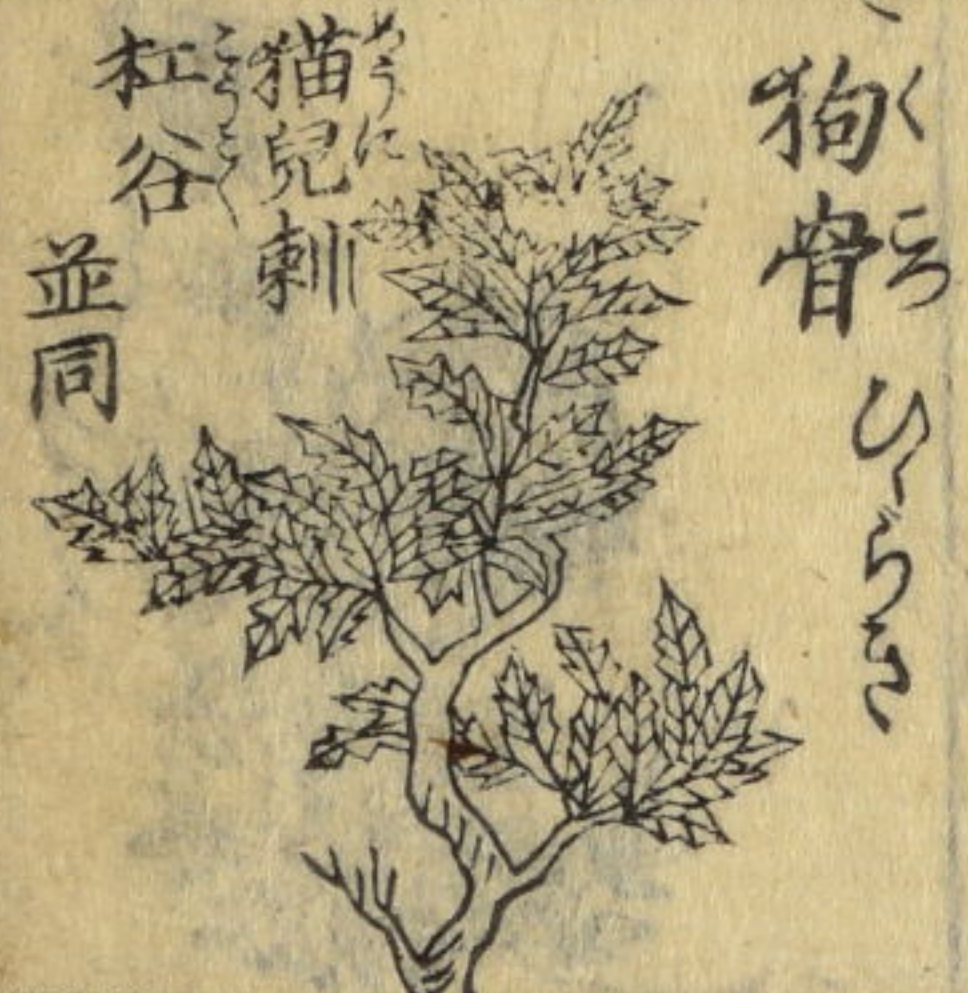 狗骨
くこつ
ひゝらき
猫兒刺
めうに
杠谷
こうこく
並同